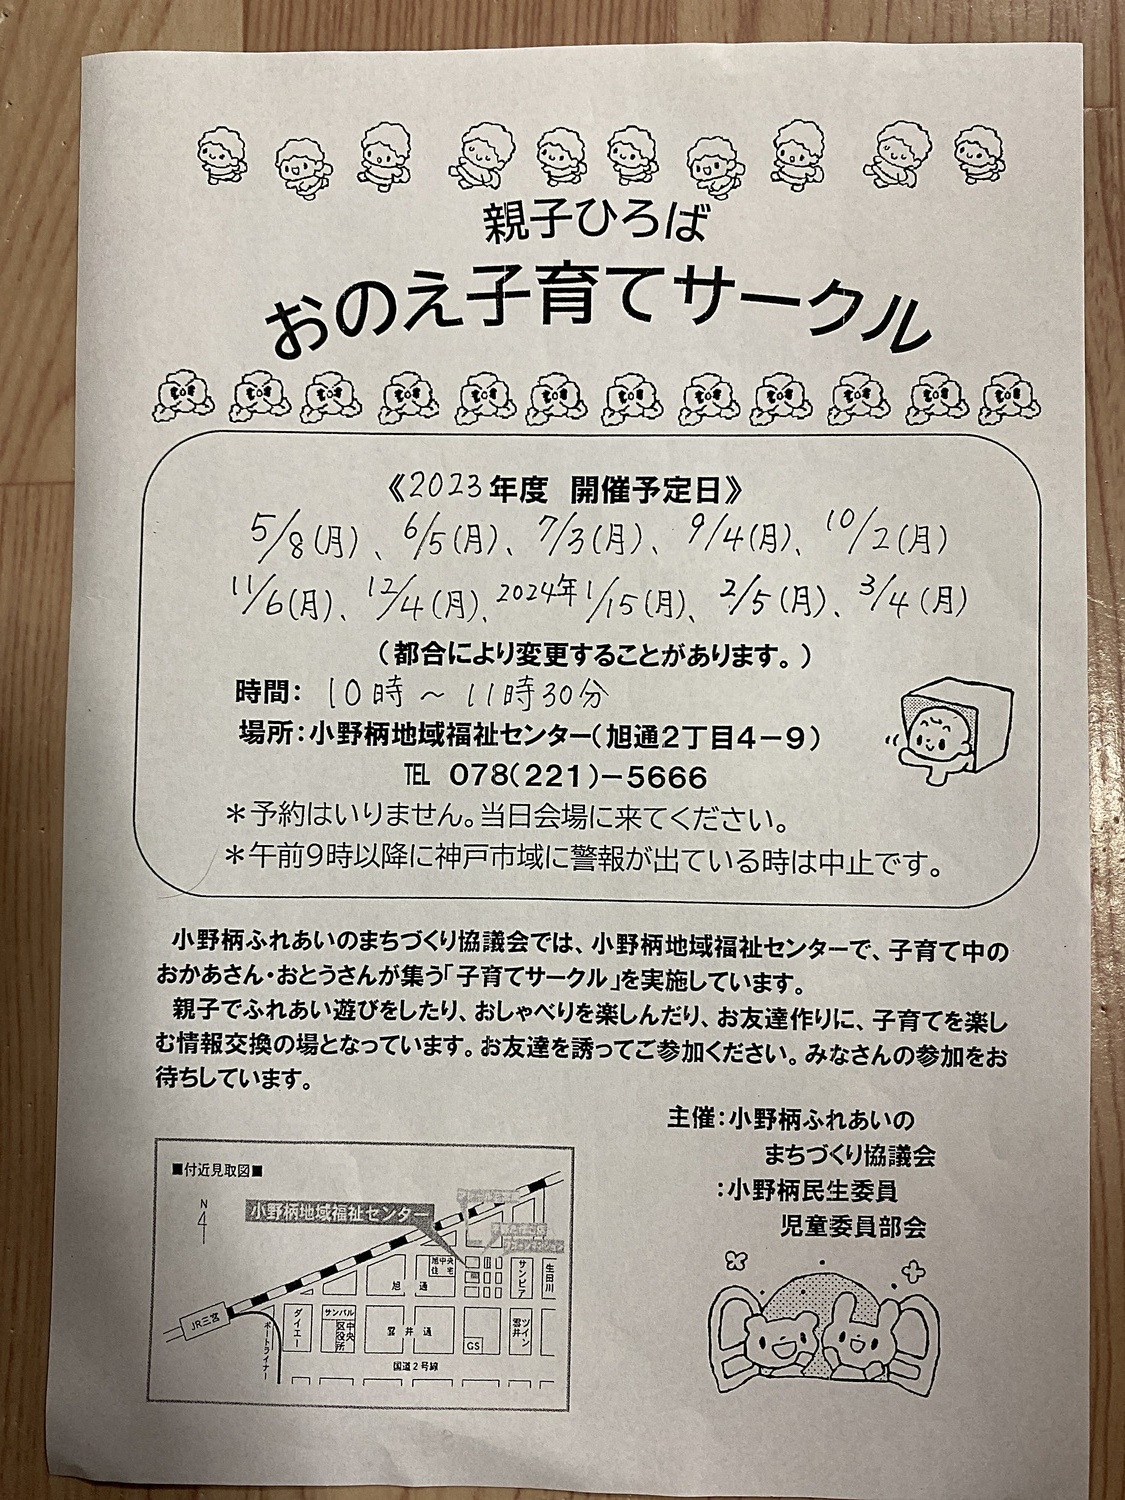 親子ひろば
おのえ子育てサークル
《2023年度 開催予定日》
5/8(月)、6/5(月)、7/3(月)、9/4(月)、10/2(月)
11/6(月)、12/4(月)、2024年1/15(月)、2/5(月)、3/4(月)
(都合により変更することがあります。)
時間: 10時～11時30分
場所:小野柄地域福祉センター(旭通2丁目4-9)
℡ 078(221)-5666
*予約はいりません。当日会場に来てください。
*午前9時以降に神戸市域に警報が出ている時は中止です。
小野柄ふれあいのまちづくり協議会では、小野柄地域福祉センターで、子育て中の
おかあさん・おとうさんが集う「子育てサークル」を実施しています。
親子でふれあい遊びをしたり、おしゃべりを楽しんだり、お友達作りに、子育てを楽し
む情報交換の場となっています。お友達を誘ってご参加ください。みなさんの参加をお
待ちしています。
主催:小野柄ふれあいの
まちづくり協議会
:小野柄民生委員
児童委員部会
■付近見取図■
N
小野柄地域福祉センター
旭中央
住宅
サンピア
生田川
旭通
JR三宮
ポートライナー
ダイエー
サンパル
中央
区役所
雲井通
GS
ツイン
雲井
国道2号線